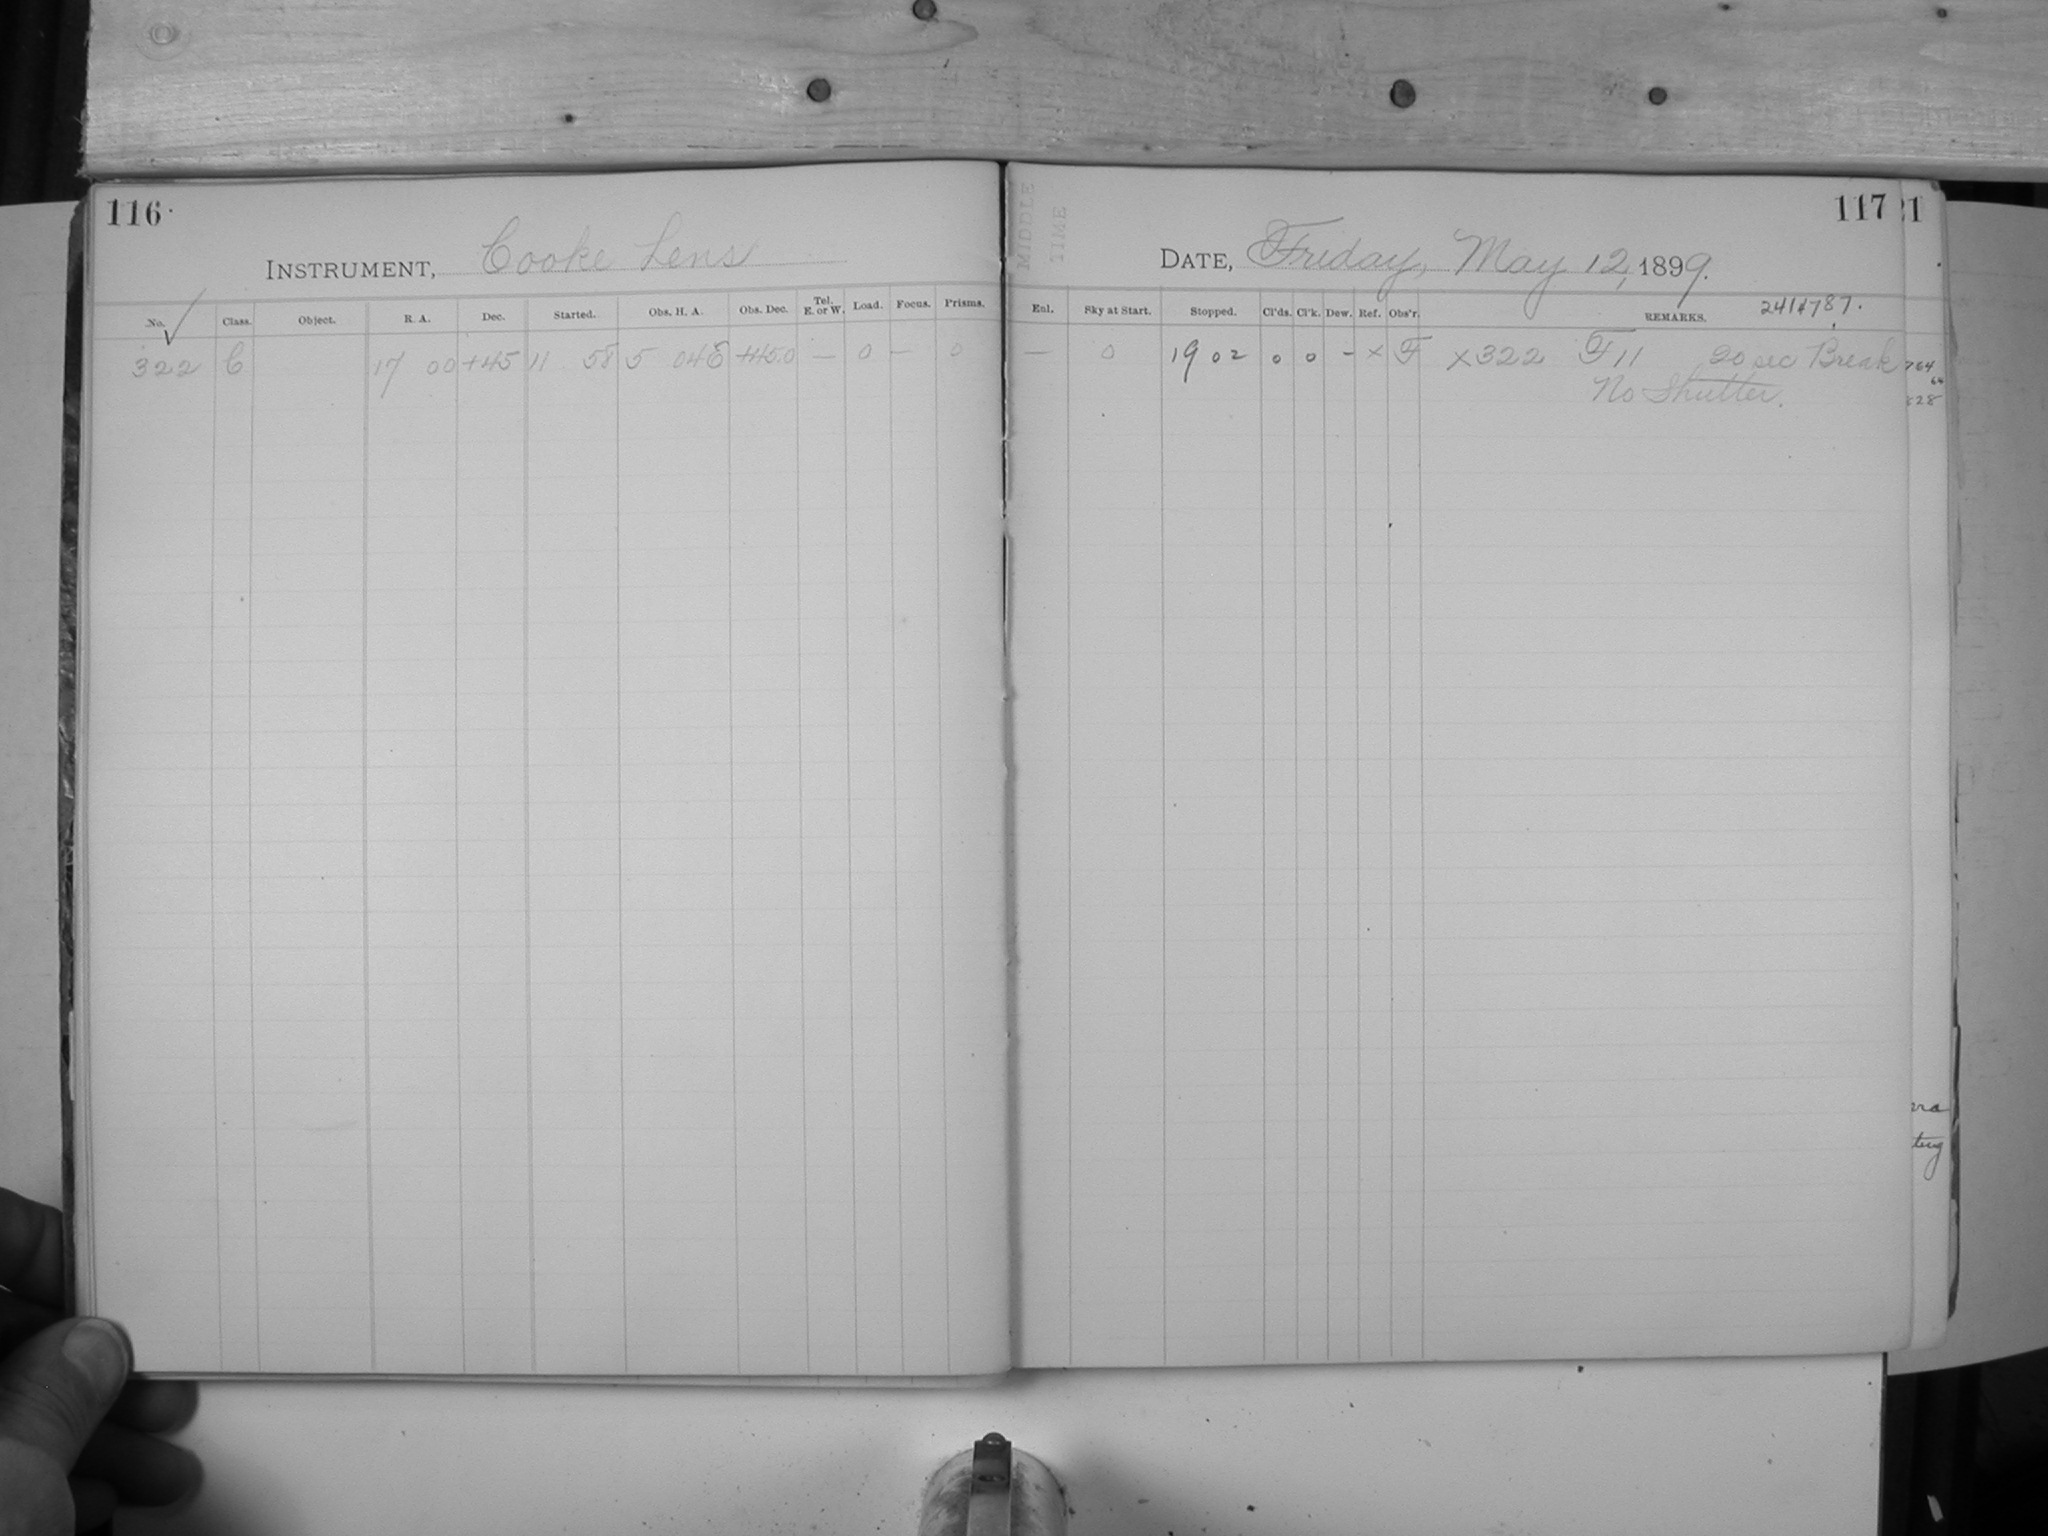 116
INSTRUMENT, Cooke Lens
No. Class. Object. R. A. Dec. Started. Obs. H. A. Obs. Dec. Tel. E. or W. Load. Focus. Prisms.
322 C 17 00 +45 11 58 5 04 E +45.0 — 0 — 0
MIDDLE TIME
117
21
DATE, Friday, May 12, 1899.
2414787.
Enl. Sky at Start. Stopped. Cl'ds. Cl'k. Dew. Ref. Obs'r. REMARKS.
— 0 19 02 0 0 - x F x322 F 11 20 sec Break
No Shutter.
764
64
828